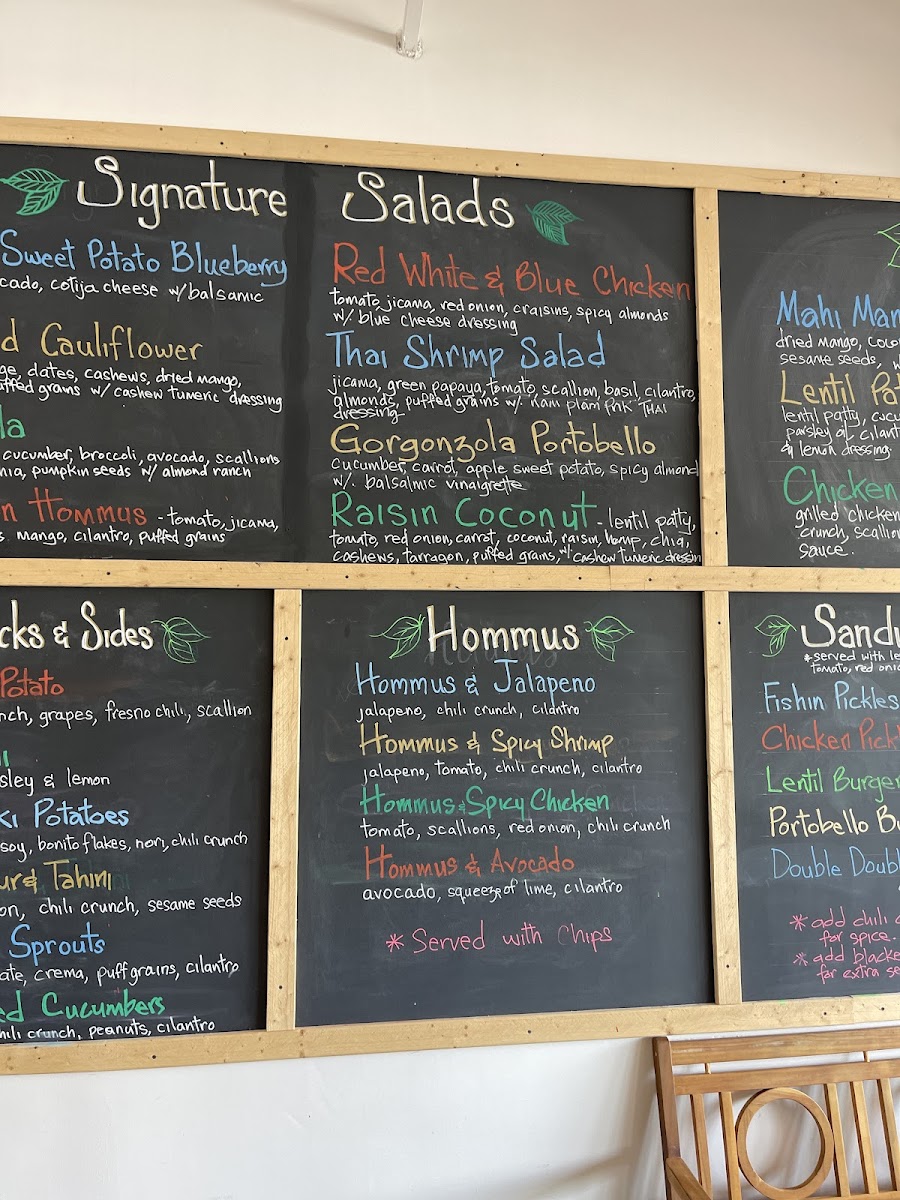 Signature Salads
Sweet Potato Blueberry
cado, cotija cheese w/balsamic
d Cauliflower
ge, dates, cashews, dried mango,
uffed grains w/ cashew tumeric dressing
la
cucumber, broccoli, avocado, scallions
nia, pumpkin seeds w/ almond ranch
n Hommus - tomato, jicama,
s mango, cilantro, puffed grains
Red White & Blue Chicken
tomato, jicama, red onion, craisins, spicy almonds
w/. blue cheese dressing
Thai Shrimp Salad
jicama, green papaya, tomato, scallion, basil, cilantro,
almonds, puffed grains w/. nam plam prik THAI
dressing
Gorgonzola Portobello
cucumber, carrot, apple sweet potato, spicy almond
w/. balsalmic vinaigrette
Raisin Coconut - lentil patty,
tomato, red onion, carrot, coconut, raisin, hemp, chia,
cashews, tarragon, puffed grains, w/ cashew tumeric dressin
Mahi Man
dried mango, colo
sesame seeds, w
Lentil Pat
lentil patty, cucu
parsley or cilant
& lemon dressing.
Chicken
grilled chicken
crunch, scallio
sauce.
cks & Sides
Potato
nch, grapes, fresno chili, scallion
sley & lemon
ki Potatoes
soy, bonito flakes, nori, chili crunch
ur & Tahini
on, chili crunch, sesame seeds
Sprouts
ate, crema, puff grains, cilantro
ed Cucumbers
hili crunch, peanuts, cilantro
Hommus
Hommus & Jalapeno
jalapeno, chili crunch, cilantro
Hommus & Spicy Shrimp
jalapeno, tomato, chili crunch, cilantro
Hommus & Spicy Chicken
tomato, scallions, red onion, chili crunch
Hommus & Avocado
avocado, squeeze of lime, cilantro
* Served with Chips
Sandw
*served with le
tomato, red onio
Fishin Pickles
Chicken Pickl
Lentil Burger
Portobello Bu
Double Doubl
* add chili c
for spice.
* add blacke
for extra se